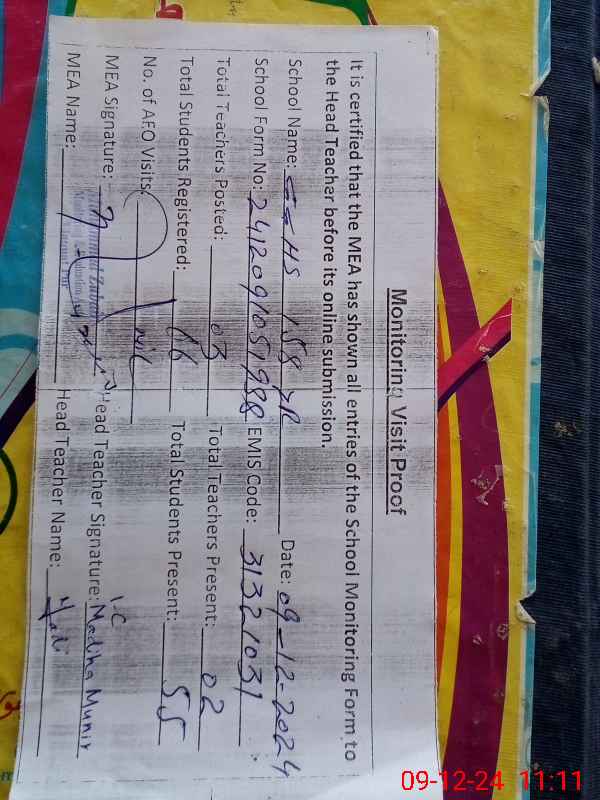 Monitoring Visit Proof
It is certified that the MEA has shown all entries of the School Monitoring Form to
the Head Teacher before its online submission.
School Name: GGHS 158 7R Date: 09-12-2024
School Form No: 241209105 1988 EMIS Code: 31321031
Total Teachers Posted: 03 Total Teachers Present: 02
Total Students Registered: 66 Total Students Present: 55
No. of AEO Visits: nil
MEA Signature: Head Teacher Signature: I-C Madiha Munir
MEA Name: Head Teacher Name:
09-12-24 11:11